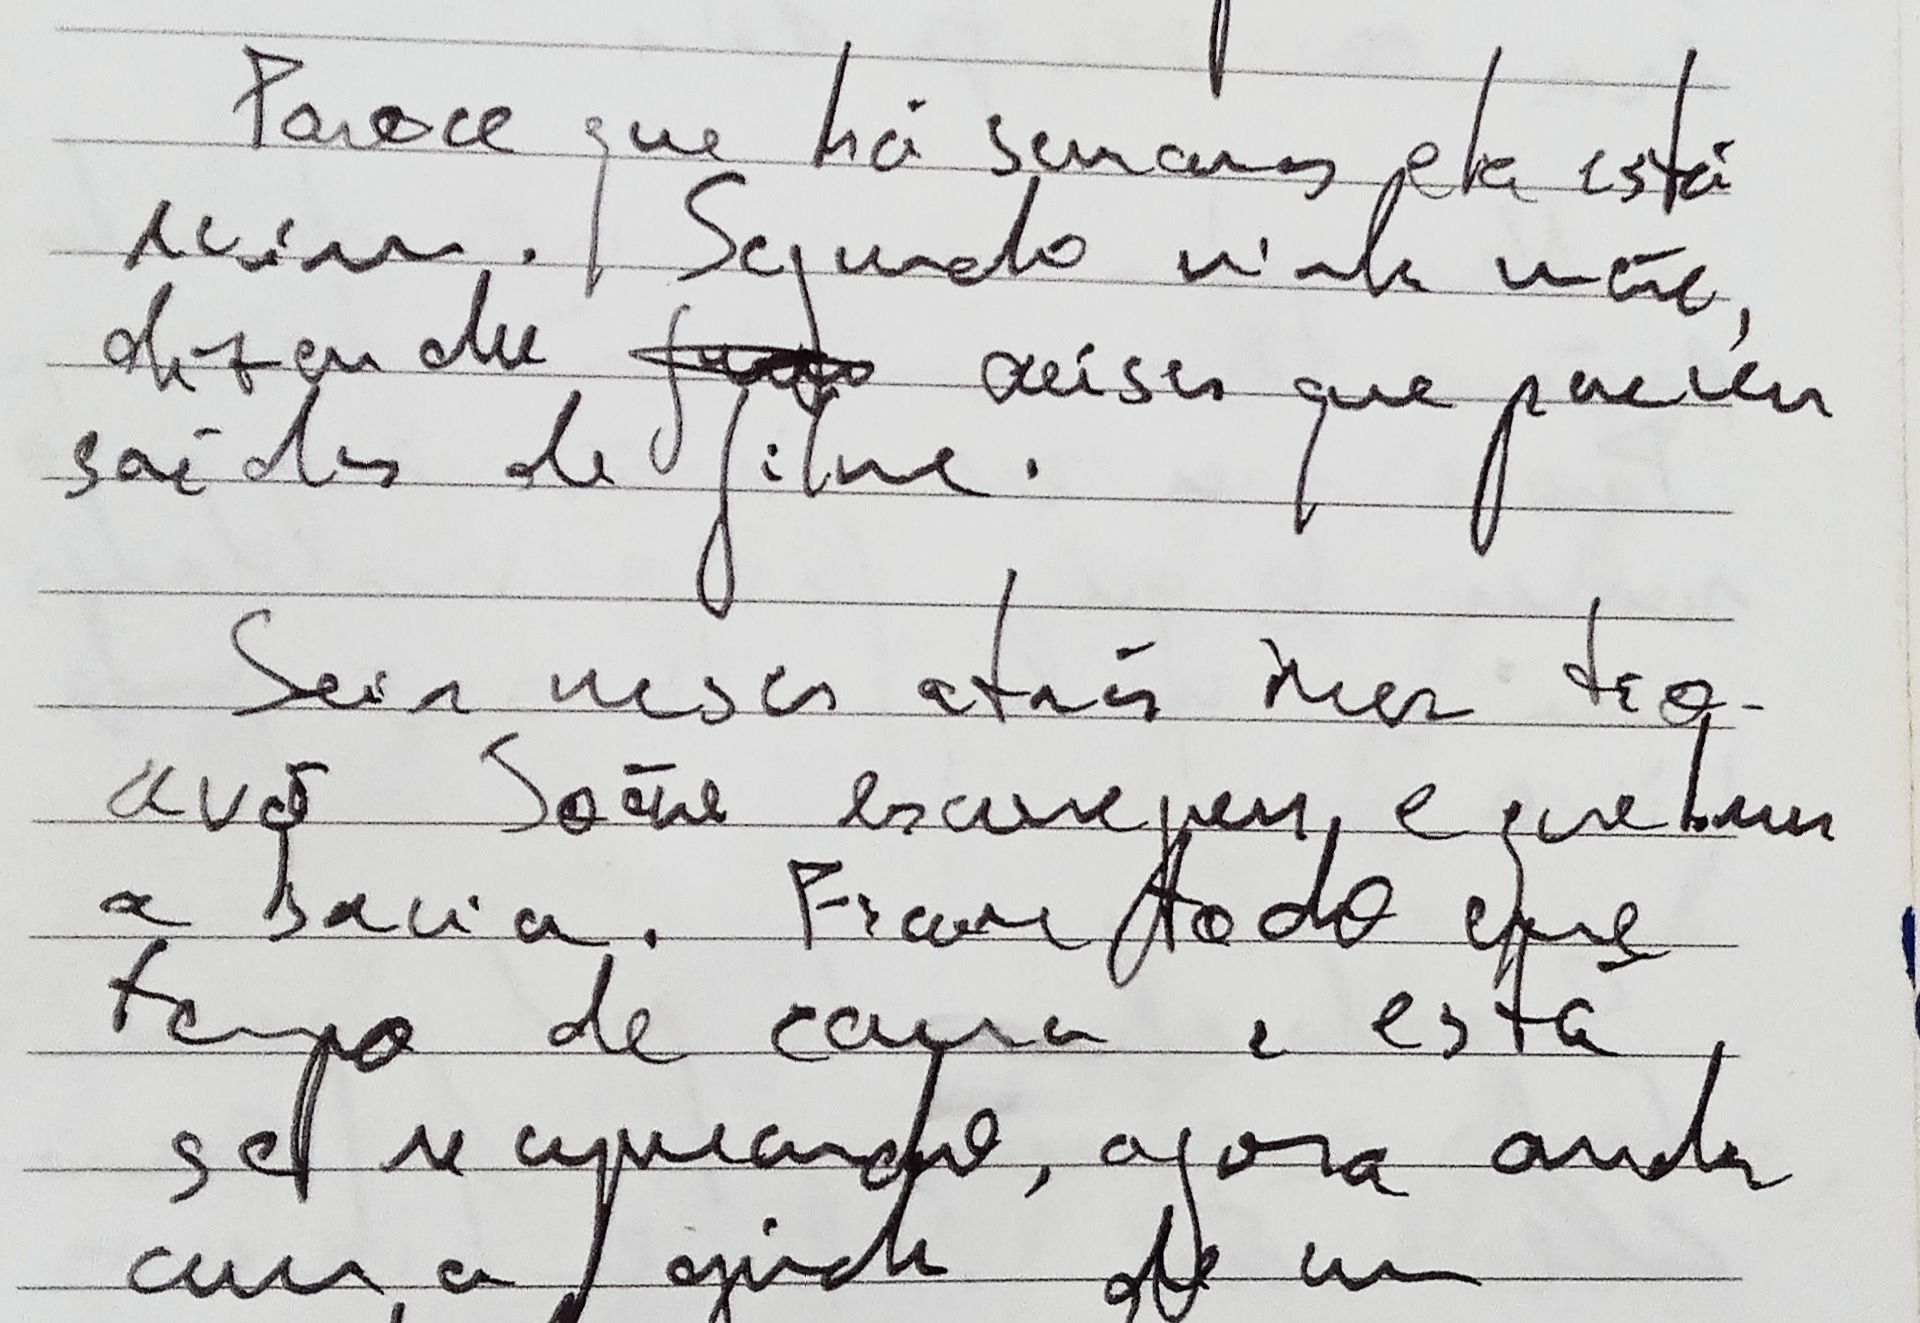 Parece que há semanas ela está
ruim. Segundo minha mãe,
dizendo crises que parecem
saídas de filme.
Seis meses atrás meu tio-
avô escorregou e quebrou
a bacia. Ficou todo esse
tempo de cama e está
se recuperando, agora anda
com a ajuda de um